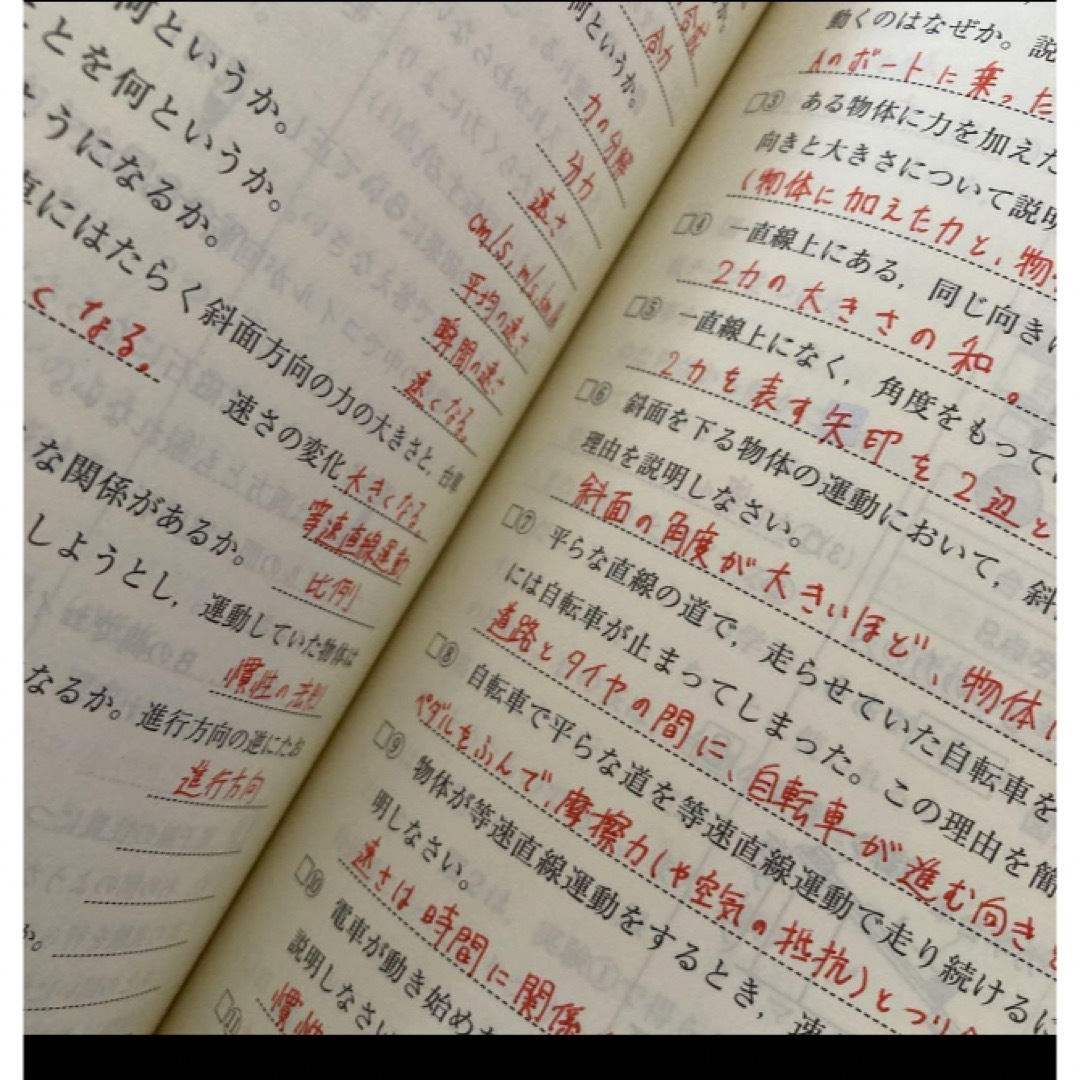 何というか。
ことを何というか。
ようになるか。
にはたらく斜面方向の力の大きさと、台車
くなる。
速さの変化 大きくなる。
な関係があるか。
しようとし、運動していた物体は
なるか。進行方向の逆にたお
か。
合力
何というか。
力の分解
分力
速さ
cm/s, m/s, km/h
平均の速さ
瞬間の速さ
速くなる。
等速直線運動
比例
慣性の法則
進行方向
動くのはなぜか。説
Aのボートに乗った
③ ある物体に力を加えた
向きと大きさについて説明
(物体に加えた力と、物
④ 一直線上にある、同じ向きに
2力の大きさの和。
⑤ 一直線上になく、角度をもって
2力を表す矢印を2辺と
⑥ 斜面を下る物体の運動において、斜
理由を説明しなさい。
斜面の角度が大きいほど、物体に
⑦ 平らな直線の道で、走らせていた自転車を
には自転車が止まってしまった。この理由を簡
道路とタイヤの間に、自転車が進む向きと
⑧ 自転車で平らな道を等速直線運動で走り続けるに
ペダルをふんで、摩擦力(や空気の抵抗)とつり合
⑨ 物体が等速直線運動をするとき、速
明しなさい。
速さは時間に関係
⑩ 電車が動き始めた
説明しなさい
慣性
⑪